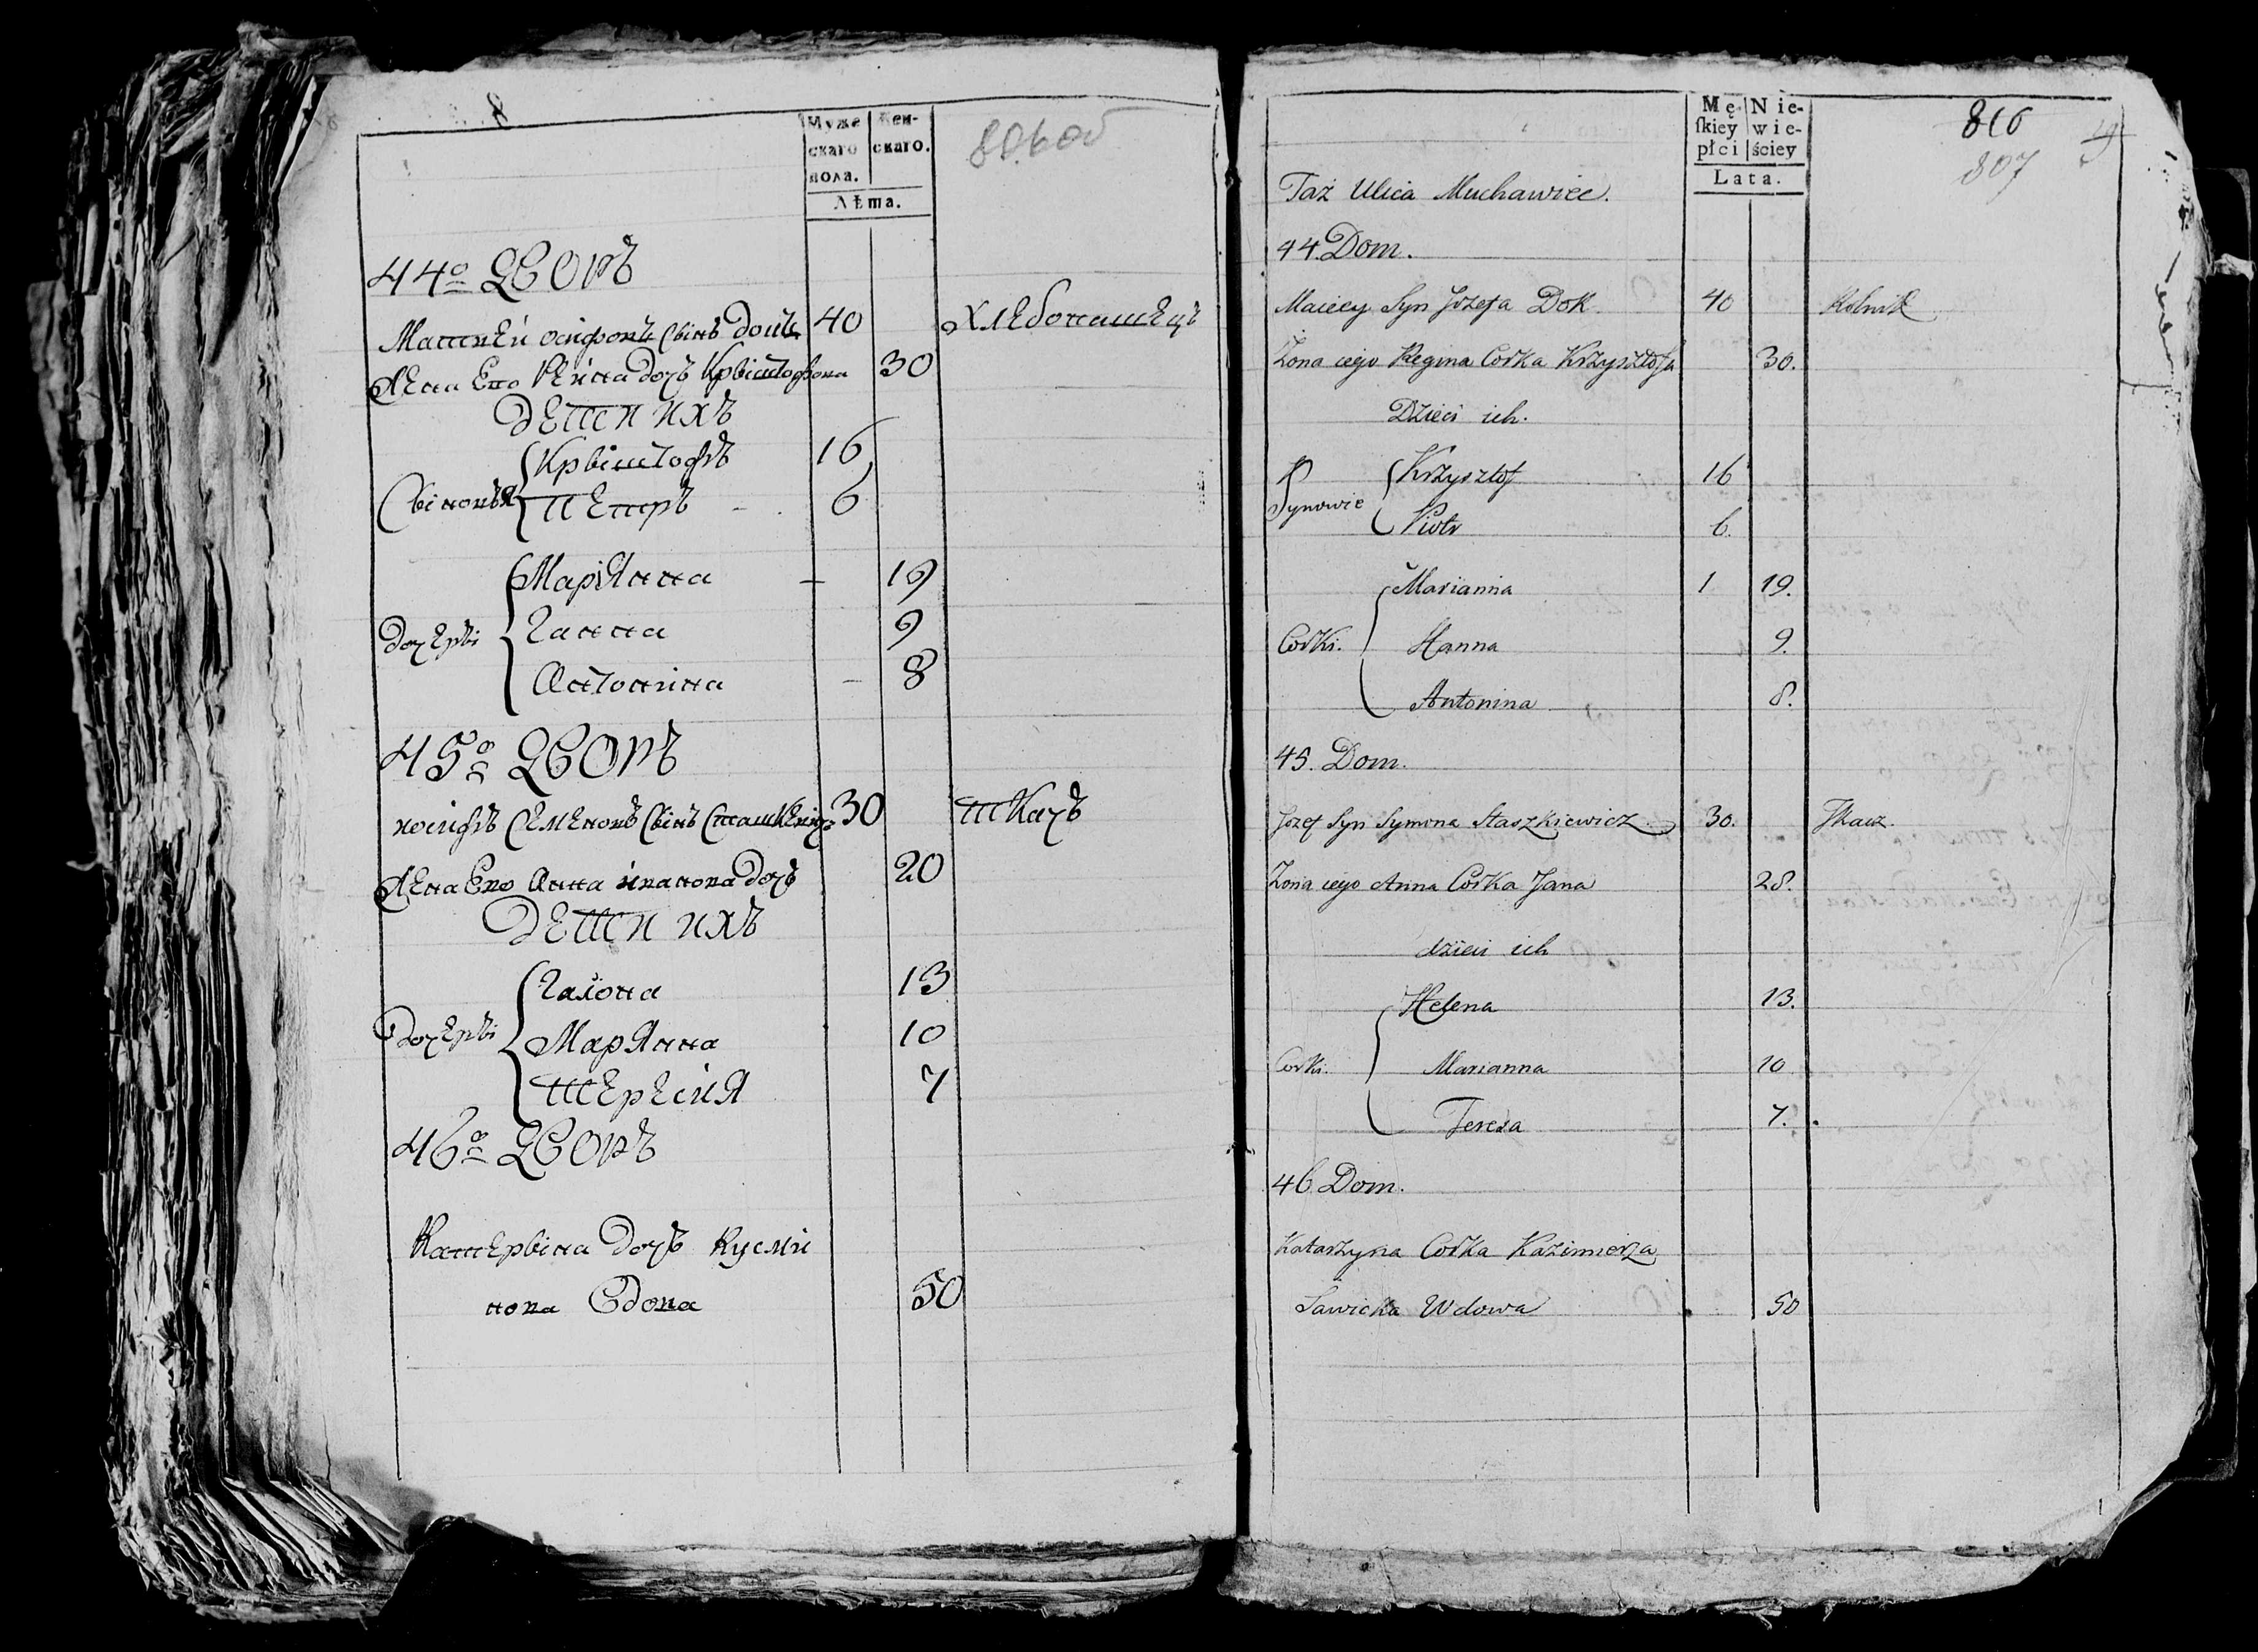 Муже
скаго
пола.
Жен-
скаго.
Лѣта.
806 об
44º Дворъ
Матвей осифовъ Сынъ Докъ 40 Хлебопашецъ
Жена Его Реина дочъ Крыштофова 30
Дети ихъ
Крыштофъ 16
Сыновья
Петръ - 6
Маріянна - 19
Дочеры Ганна 9
Антонина - 8
45º Дворъ
иосифъ Семеновъ Сынъ Сташкевичъ 30 Ткачъ
Жена Его Анна иванова Дочъ 20
Дети ихъ
Галiона 13
Дочеры Марянна 10
Тересия 7
46º Дворъ
Катерына Дочъ Кузми
нова Вдова 50
Mę-
ſkiey
płci
Nie-
wie-
ściey
Lata.
816
807
Taż Ulica Muchawiec.
44. Dom.
Maciey Syn Jozefa Dok 40 Rolnik
Żona iego Regina Corka Krzysztofa 30.
Dzieci ich.
Krzysztof 16
Synowie
Piotr 6.
Marianna 1 19.
Corki. Hanna 9.
Antonina 8.
45. Dom.
Jozef Syn Symona Staszkiewicz 30. Tkacz.
Żona iego Anna Corka Jana 28.
dzieci ich
Helena 13.
Corki. Marianna 10
Teresa 7.
46 Dom.
Katarzyna Corka Kazimierza
Sawicka Wdowa 50